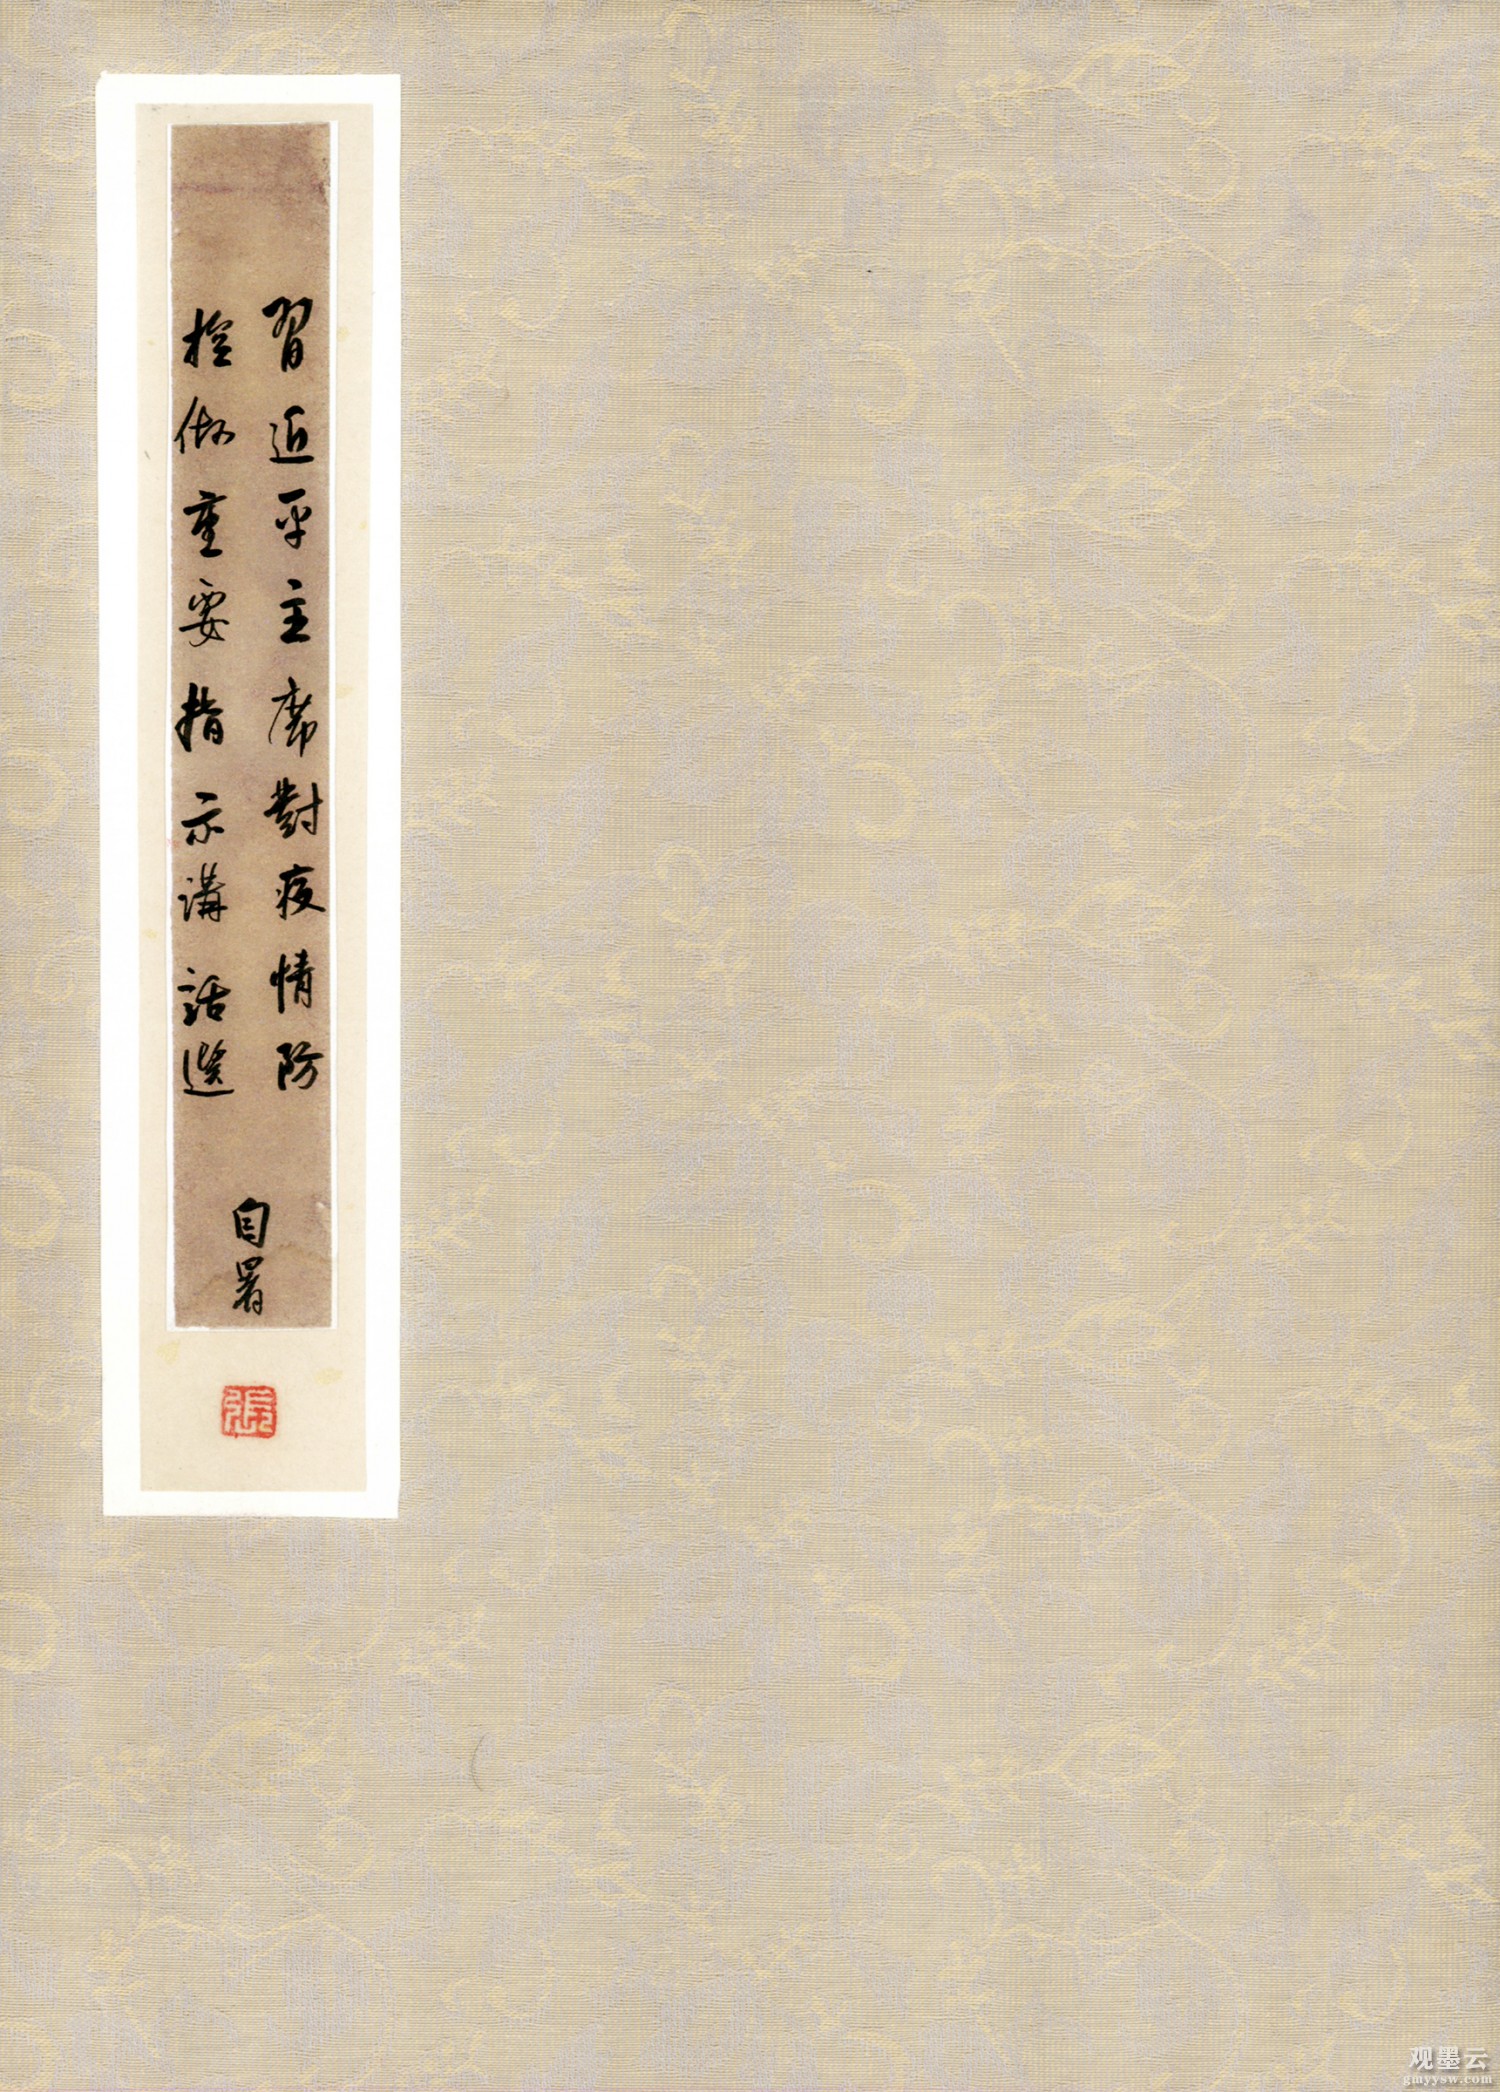 習近平主席對疫情防
控做重要指示講話選
自署
張
观墨云
gmyysw.com